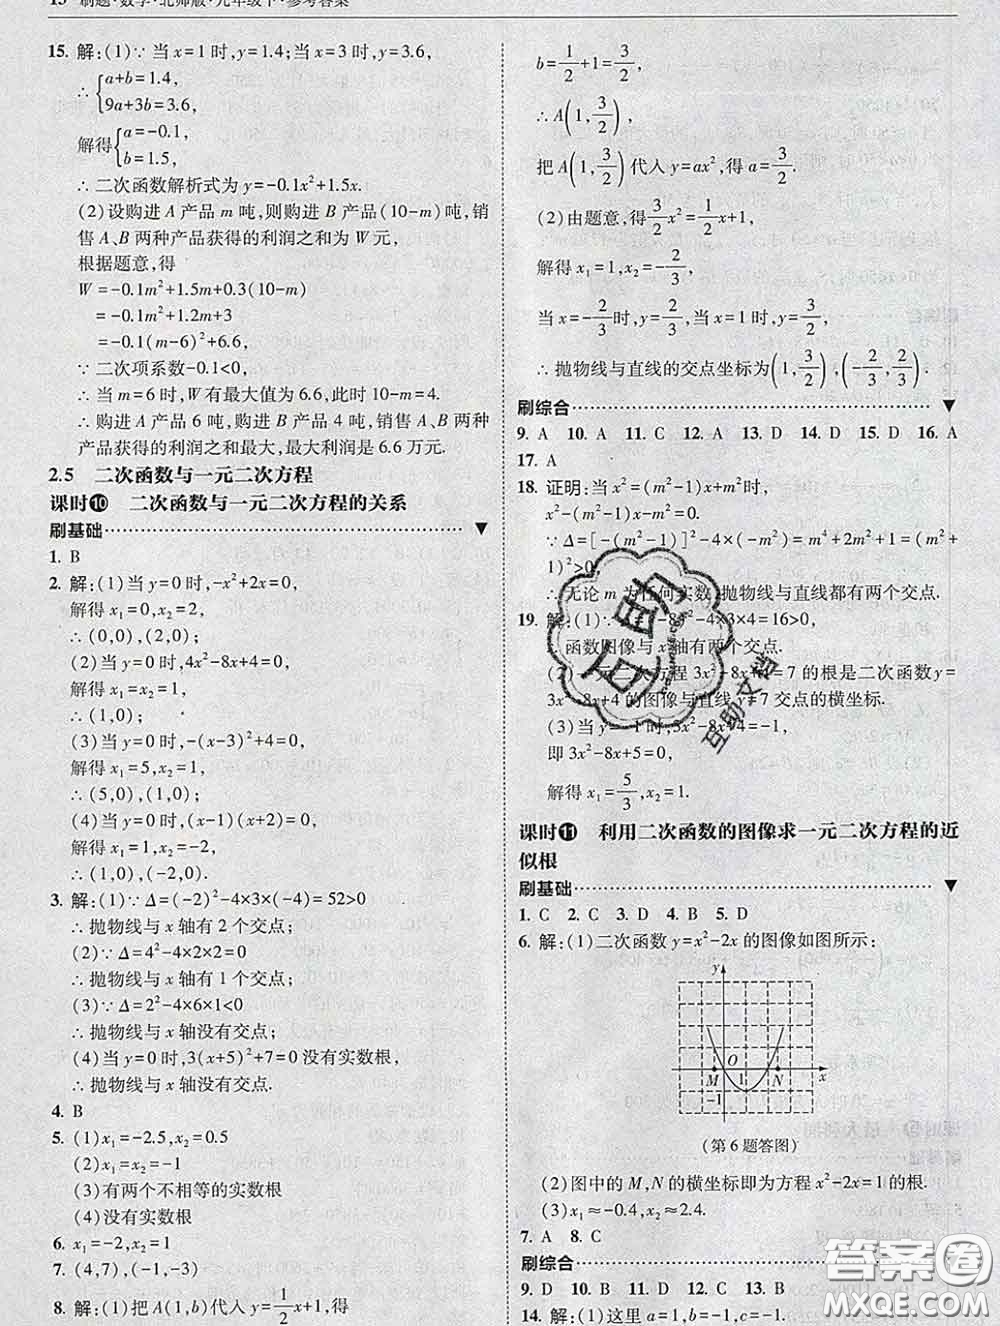 13 刷题·数学·北师版·九年级下·参考答案
15. 解:(1)∵ 当 x=1 时,y=1.4;当 x=3 时,y=3.6,
∴ {a+b=1.4,
9a+3b=3.6,
解得{a=-0.1,
b=1.5,
∴ 二次函数解析式为 y=-0.1x²+1.5x.
(2)设购进 A 产品 m 吨,则购进 B 产品(10-m)吨,销
售 A、B 两种产品获得的利润之和为 W 元,
根据题意,得
W=-0.1m²+1.5m+0.3(10-m)
=-0.1m²+1.2m+3
=-0.1(m-6)²+6.6,
∵ 二次项系数-0.1<0,
∴ 当 m=6 时,W 有最大值为 6.6,此时10-m=4.
∴ 购进 A 产品 6 吨,购进 B 产品 4 吨,销售 A、B 两种
产品获得的利润之和最大,最大利润是 6.6 万元.
2.5 二次函数与一元二次方程
课时⑩ 二次函数与一元二次方程的关系
刷基础 ▼
1. B
2. 解:(1)当 y=0 时,-x²+2x=0,
解得 x₁=0,x₂=2,
∴ (0,0),(2,0);
(2)当 y=0 时,4x²-8x+4=0,
解得 x=1,
∴ (1,0);
(3)当 y=0 时,-(x-3)²+4=0,
解得 x₁=5,x₂=1,
∴ (5,0),(1,0);
(4)当 y=0 时,-(x-1)(x+2)=0,
解得 x₁=1,x₂=-2,
∴ (1,0),(-2,0).
3. 解:(1)∵ Δ=(-2)²-4×3×(-4)=52>0
∴ 抛物线与 x 轴有 2 个交点;
(2)∵ Δ=4²-4×2×2=0
∴ 抛物线与 x 轴有 1 个交点;
(3)∵ Δ=2²-4×6×1<0
∴ 抛物线与 x 轴没有交点;
(4)当 y=0 时,3(x+5)²+7=0 没有实数根,
∴ 抛物线与 x 轴没有交点.
4. B
5. (1)x₁=-2.5,x₂=0.5
(2)x₁=x₂=-1
(3)有两个不相等的实数根
(4)没有实数根
6. x₁=-2,x₂=1
7. (4,7),(-1,-3)
8. 解:(1)把 A(1,b)代入 y=1/2x+1,得
b=1/2+1=3/2,
∴ A(1,3/2),
把 A(1,3/2)代入 y=ax²,得 a=3/2.
(2)由题意,得3/2x²=1/2x+1,
解得 x₁=1,x₂=-2/3,
当 x=-2/3时,y=2/3,当 x=1 时,y=3/2,
∴ 抛物线与直线的交点坐标为(1,3/2),(-2/3,2/3).
刷综合 ▼
9. A 10. A 11. C 12. A 13. D 14. D 15. D 16. A
17. A
18. 证明:当 x²=(m²-1)x+m²时,
x²-(m²-1)x-m²=0.
∵ Δ=[-(m²-1)]²-4×(-m²)=m⁴+2m²+1=(m²+
1)²>0,
∴ 无论 m 为任何实数,抛物线与直线都有两个交点.
19. 解:(1)∵ Δ=(-8)²-4×3×4=16>0,
∴ 函数图像与 x 轴有两个交点.
(2)一元二次方程 3x²-8x+4=7 的根是二次函数y=
3x²-8x+4 的图像与直线 y=7 交点的横坐标.
(3)当 y=-1 时,3x²-8x+4=-1,
即 3x²-8x+5=0,
解得 x₁=5/3,x₂=1.
课时⑪ 利用二次函数的图像求一元二次方程的近
似根
刷基础 ▼
1. C 2. C 3. D 4. B 5. D
6. 解:(1)二次函数 y=x²-2x 的图像如图所示:
y
O
M 1 N x
-1
(第 6 题答图)
(2)图中的 M,N 的横坐标即为方程 x²-2x=1 的根.
(3)x₁≈-0.4,x₂≈2.4.
7. A 8. C
刷综合
9. D 10. D 11. B 12. D 13. B
14. 解:(1)这里 a=1,b=-1,c=-1,
互助
互助文档
答案圈
MXQE.COM